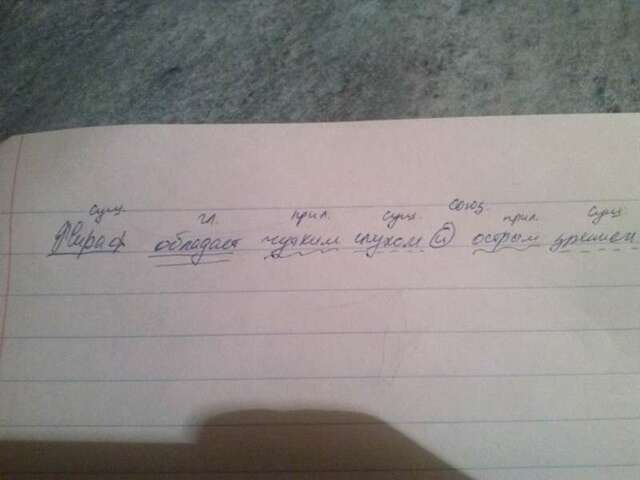 сущ. гл. прил. сущ. союз прил. сущ.
Жираф обладает чутким слухом и острым зрением